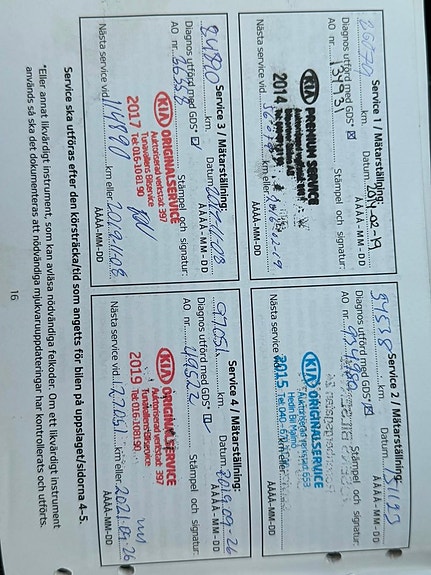 Service 1 / Mätarställning:
km. Datum 2014-02-19
Diagnos utförd med GDS* ÅÅÅÅ-MM-DD
AO nr. 135931 Stämpel och signatur:
KIA PREMIUM SERVICE
2014
Nästa service vid km eller
ÅÅÅÅ-MM-DD
Service 2 / Mätarställning:
km. Datum 151123
Diagnos utförd med GDS* ÅÅÅÅ-MM-DD
AO nr. Stämpel och signatur:
KIA ORIGINALSERVICE
Auktoriserad verkstad 653
Hedin Bil Malmö
2015 Tel: 040-
Nästa service vid km eller
ÅÅÅÅ-MM-DD
Service 3 / Mätarställning:
84890 km. Datum 2017-11-03
Diagnos utförd med GDS* ÅÅÅÅ-MM-DD
AO nr. 66358 Stämpel och signatur:
KIA ORIGINALSERVICE
Auktoriserad verkstad 397
Tunavallens Bilservice
2017 Tel: 016-108190
Nästa service vid 114890 km eller 2019-11-03
ÅÅÅÅ-MM-DD
Service 4 / Mätarställning:
97051 km. Datum 2019-09-26
Diagnos utförd med GDS* ÅÅÅÅ-MM-DD
AO nr. Stämpel och signatur:
KIA ORIGINALSERVICE
Auktoriserad verkstad 397
Tunavallens Bilservice
2019 Tel: 016-108190
Nästa service vid 127051 km eller 2021-09-26
ÅÅÅÅ-MM-DD
Service ska utföras efter den körsträcka/tid som angetts för bilen på uppslaget/sidorna 4-5.
*Eller annat likvärdigt instrument, som kan avläsa nödvändiga felkoder. Om ett likvärdigt instrument
används så ska det dokumenteras att nödvändiga mjukvaruuppdateringar har kontrollerats och utförts.
16